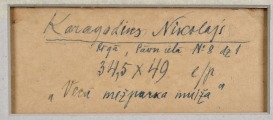 Karagodins, Nikolajs
Rīgā, Pāvu ielā Nº 8 dz 1
34,5 x 49 e/p
„Vecā mežparka muiža”